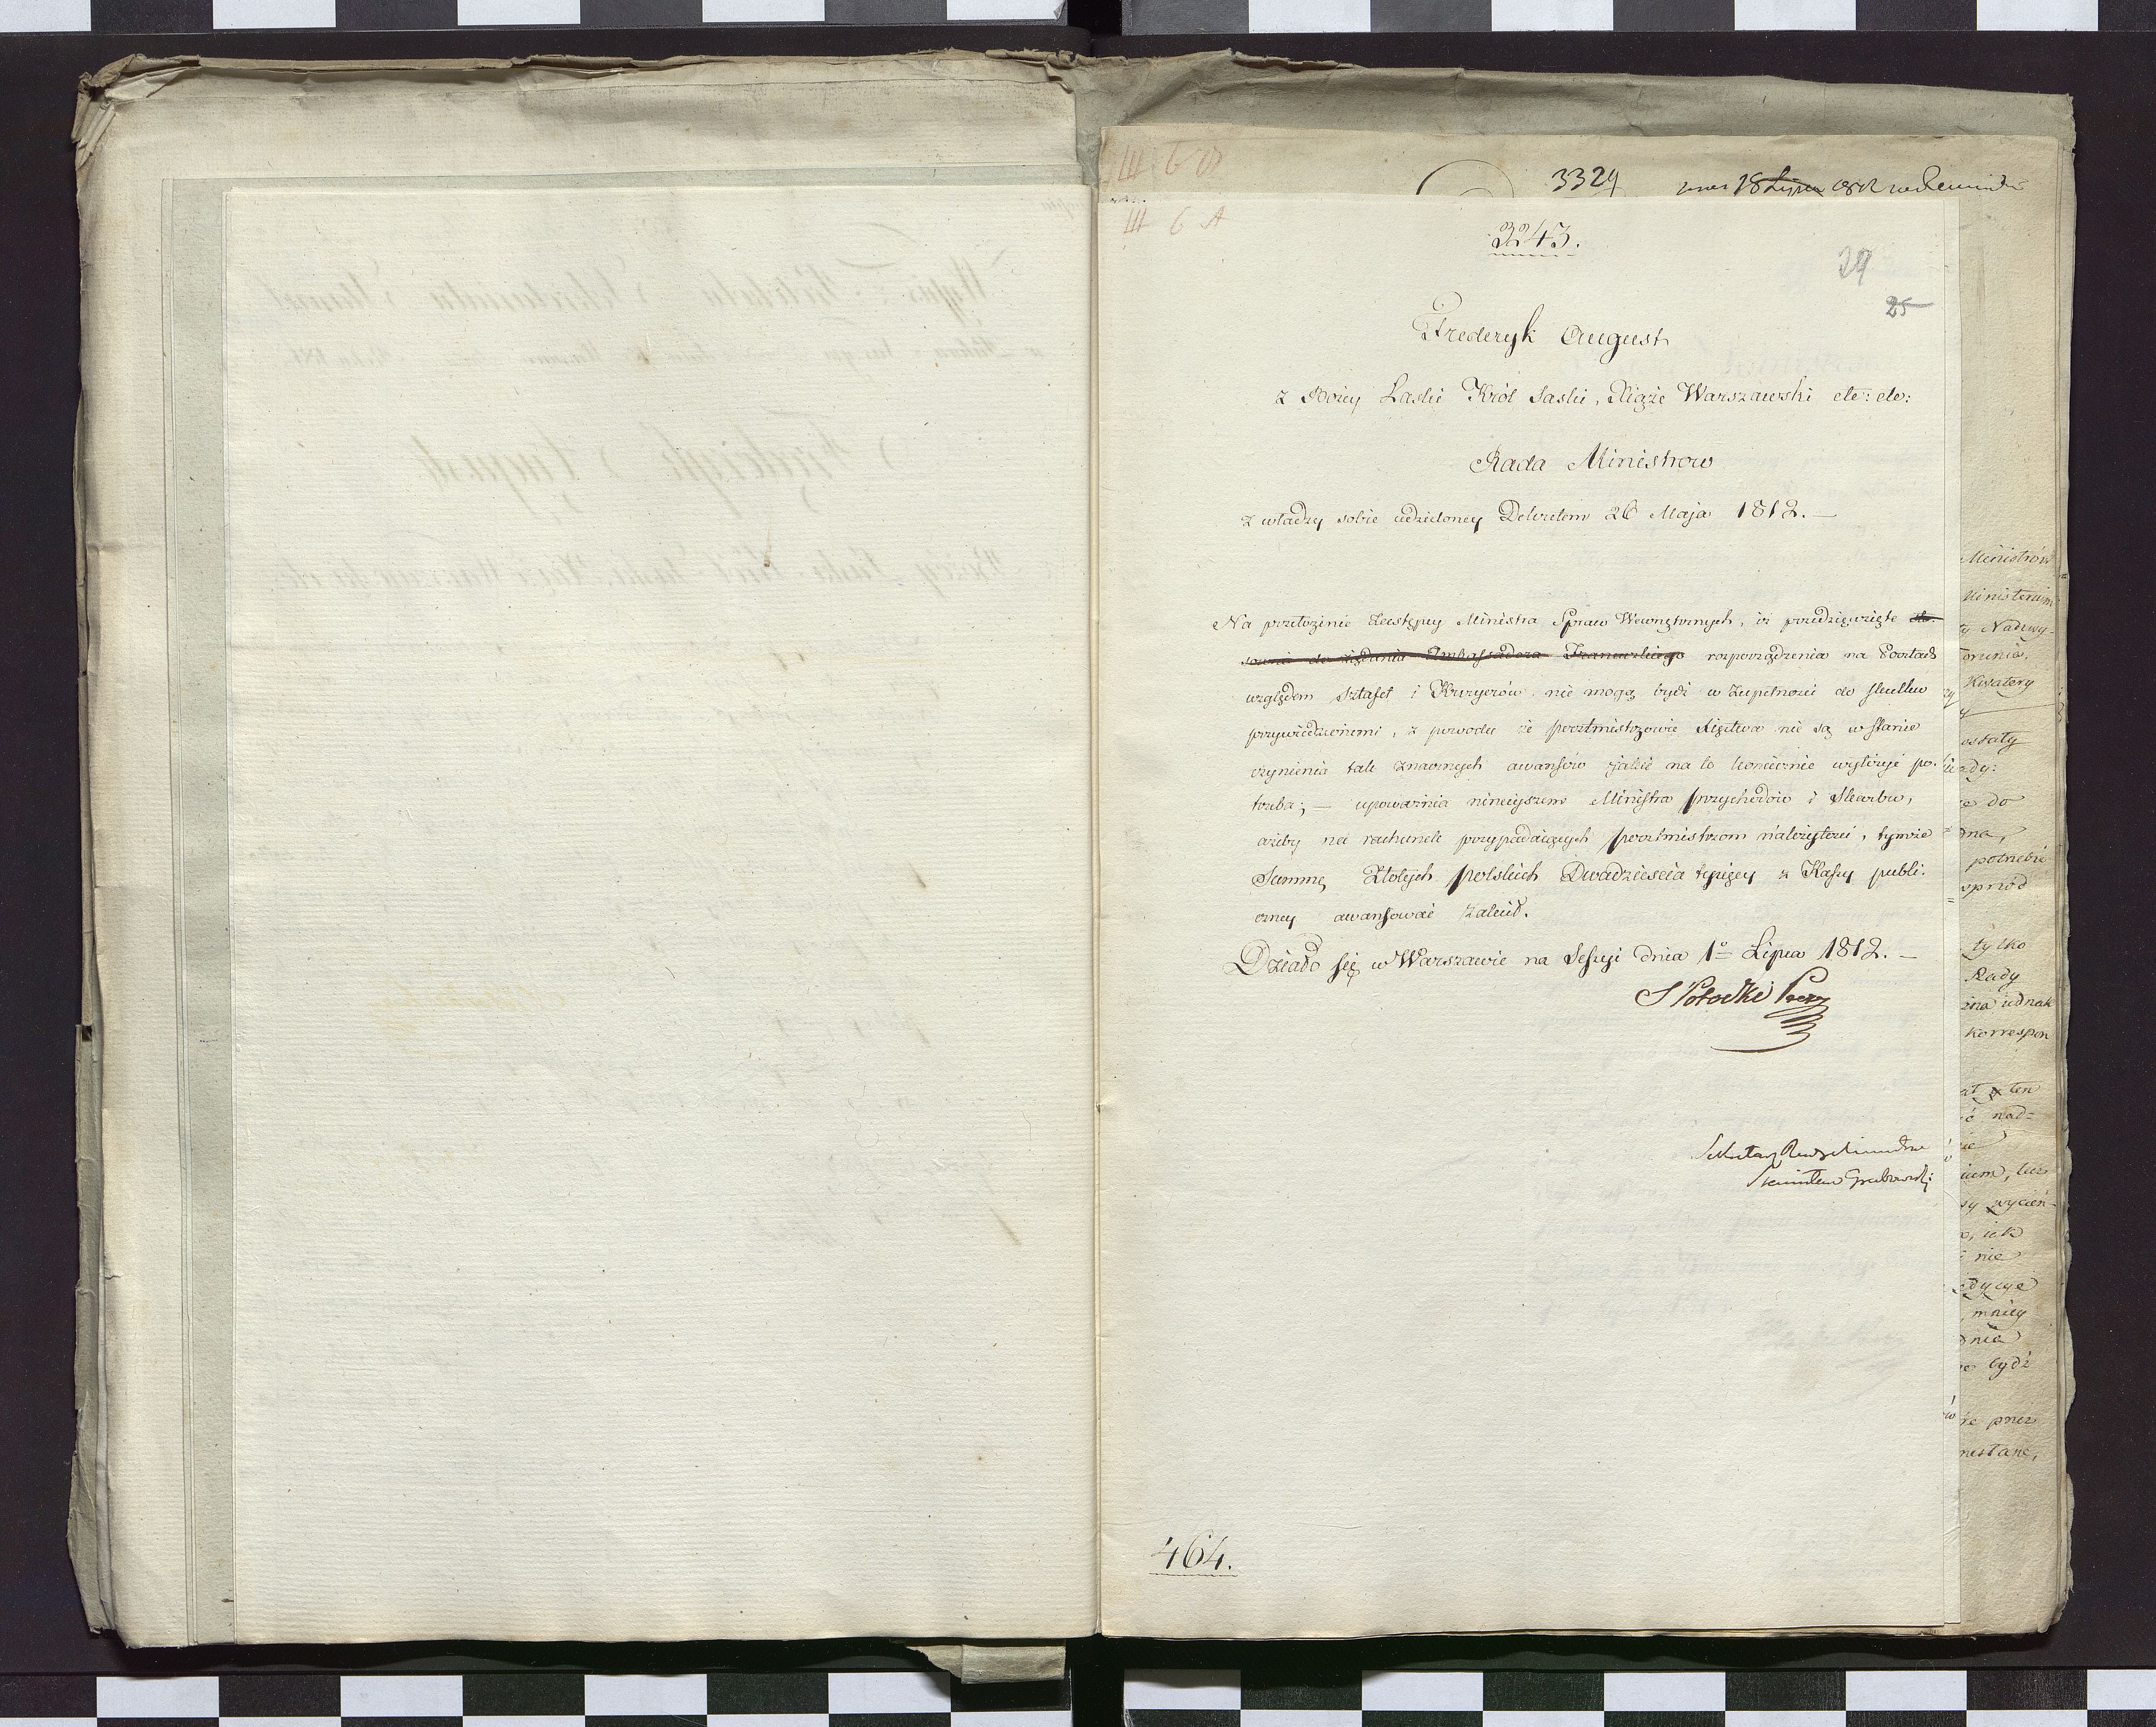 3329
III 6 A
3243.
29
25
Frederyk August
z Bożey Łaski Król Saski, Xiąże Warszawski etc: etc:
Rada Ministrow
z władzy sobie udzieloney Dekretem 26 Maja 1812. —
Na przełożenie Zastępcy Ministra Spraw Wewnętrznych, iż przedsięwzięte sto-
sownie do żądania Ambassadora Francuzkiego rozporządzenia na Pocztach
względem sztafet i Kuryerów nie mogą bydź w zupełności do skutku
przywiedzionemi, z powodu że pocztmistrzowie Xięztwa nie są w stanie
czynienia tak znacznych awansów jakie na to koniecznie wyłożyć po-
trzeba; — upoważnia ninieyszem Ministra przychodów i Skarbu,
ażeby na rachunek przypadaiących pocztmistrzom należytości, tymże
Summę Złotych polskich Dwadzieścia tysięcy z Kassy publi-
czney awansować zalecił.
Działo się w Warszawie na Sessyi dnia 1o Lipca 1812. —
S Potocki Prezes
Sekretarz Rady Ministrów
Stanisław Grabowski
464.
Ministrów
Ministerium
Nadzwy-
Kwatery
do
potrzebie
tylko
Rady
jednak
korrespon
ten
nad=
nie
mniey
bydź
przez